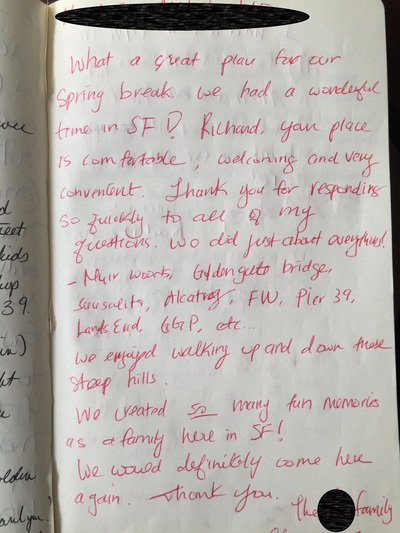 What a great plan for our
Spring break. we had a wonderful
time in SF! Richard, your place
is comfortable, welcoming and very
convenient. Thank you for responding
so quickly to all of my
questions. We did just about everything!
- Muir woods, Goldengate bridge,
Sausalito, Alcatraz, FW, Pier 39,
Lands End, GGP, etc...
we enjoyed walking up and down those
steep hills.
We created so many fun memories
as a family here in SF!
We would definitely come here
again. Thank you.
The family
39.